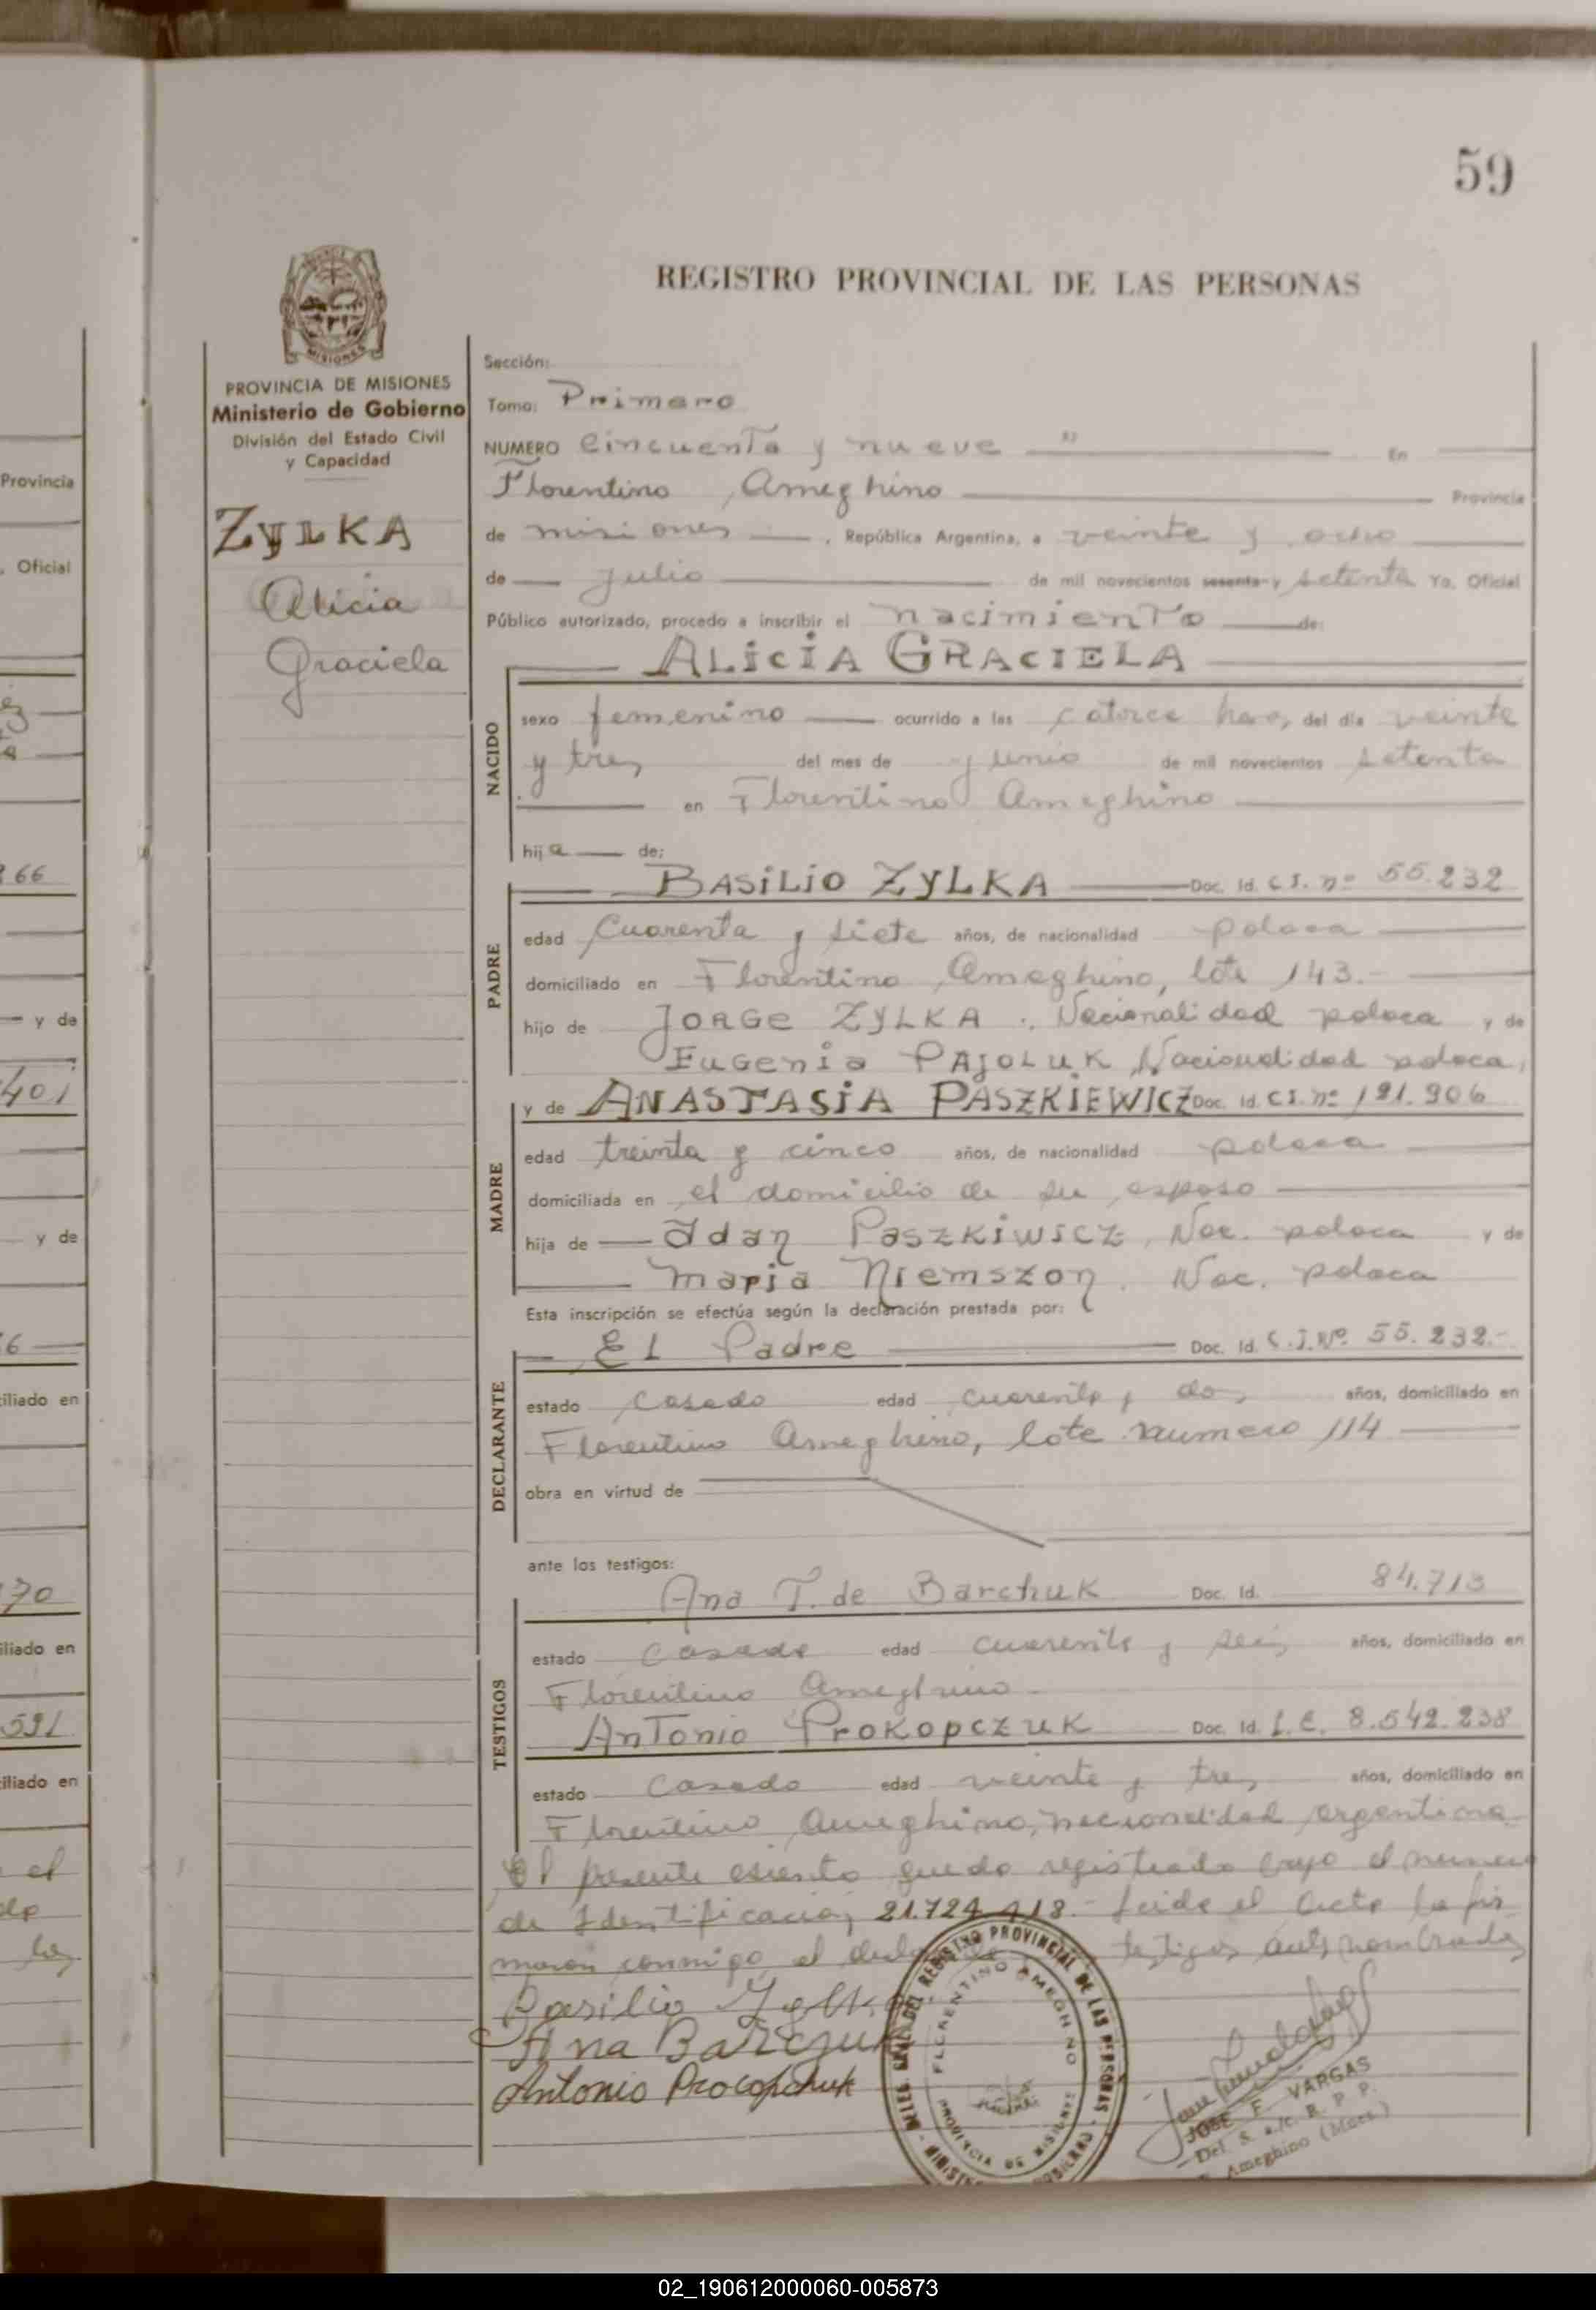 59
REGISTRO PROVINCIAL DE LAS PERSONAS
MISIONES
PROVINCIA DE MISIONES
Ministerio de Gobierno
División del Estado Civil
y Capacidad
ZYLKA
Alicia
Graciela
Sección:
Tomo: Primero
NUMERO Cincuenta y nueve " En
Florentino Ameghino Provincia
de misiones, República Argentina, a veinte y ocho
de julio de mil novecientos sesenta y setenta Yo, Oficial
Público autorizado, procedo a inscribir el nacimiento de:
ALICIA GRACIELA
NACIDO
sexo femenino ocurrido a las catorce horas del día veinte
y tres del mes de junio de mil novecientos setenta
en Florentino Ameghino
hija de:
PADRE
BASILIO ZYLKA Doc. Id. C.I. nº 55.232
edad Cuarenta y siete años, de nacionalidad polaca
domiciliado en Florentino Ameghino, lote 143.-
hijo de JORGE ZYLKA. Nacionalidad polaca y de
EUGENIA PAJOLUK Nacionalidad polaca,
MADRE
y de ANASTASIA PASZKIEWICZ Doc. Id. C.I. nº 191.906
edad treinta y cinco años, de nacionalidad polaca
domiciliada en el domicilio de su esposo
hija de Adan PASZKIWICZ, Nac. polaca y de
maria Niemszon. Nac. polaca
Esta inscripción se efectúa según la declaración prestada por:
DECLARANTE
El Padre Doc. Id. C.I.Nº. 55.232.-
estado casado edad cuarenta y dos años, domiciliado en
Florentino Ameghino, lote numero 114
obra en virtud de
ante los testigos:
TESTIGOS
Ana T. de Barchuk Doc. Id. 84.713
estado casada edad cuarenta y seis años, domiciliado en
Florentino Ameghino -
Antonio PROKOPCZUK Doc. Id. L.E. 8.542.238
estado casado edad veinte y tres años, domiciliado en
Florentino Ameghino, nacionalidad argentina-
El presente asiento queda registrado bajo el numero
de Identificacion 21.724.418.- Leida el Acta la fir
maron conmigo el testigos antes nombrados
Basilio Zylka
Ana Barczuk
Antonio Procopchuk
DEL REGISTRO PROVINCIAL DE LAS PERSONAS
FLORENTINO AMEGHINO
PROVINCIA DE MISIONES
JOSE F. VARGAS
Del. S. a/c. R. P. P.
F. Ameghino (Mnes.)
Provincia
, Oficial
66
y de
401
y de
6
iliado en
70
iliado en
591
iliado en
el
02_190612000060-005873